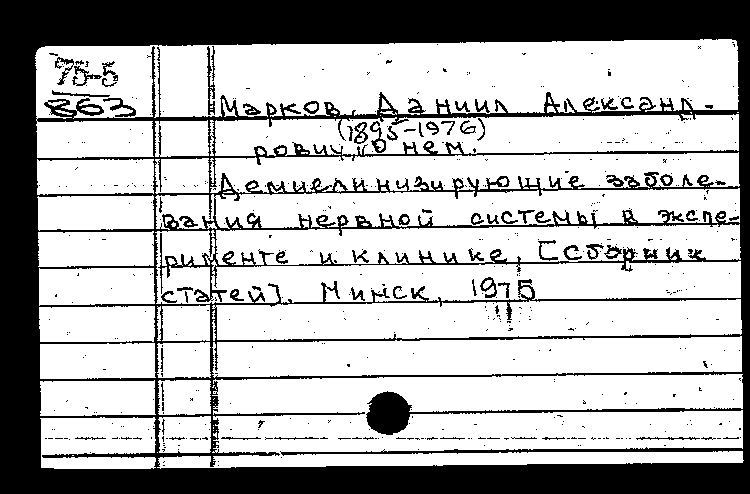 75-5
863
Марков, Даниил Александ-
(1895-1976)
рович, о нем.
Демиелинизирующие заболе-
вания нервной системы в экспе-
рименте и клинике. [Сборник
статей]. Минск, 1975